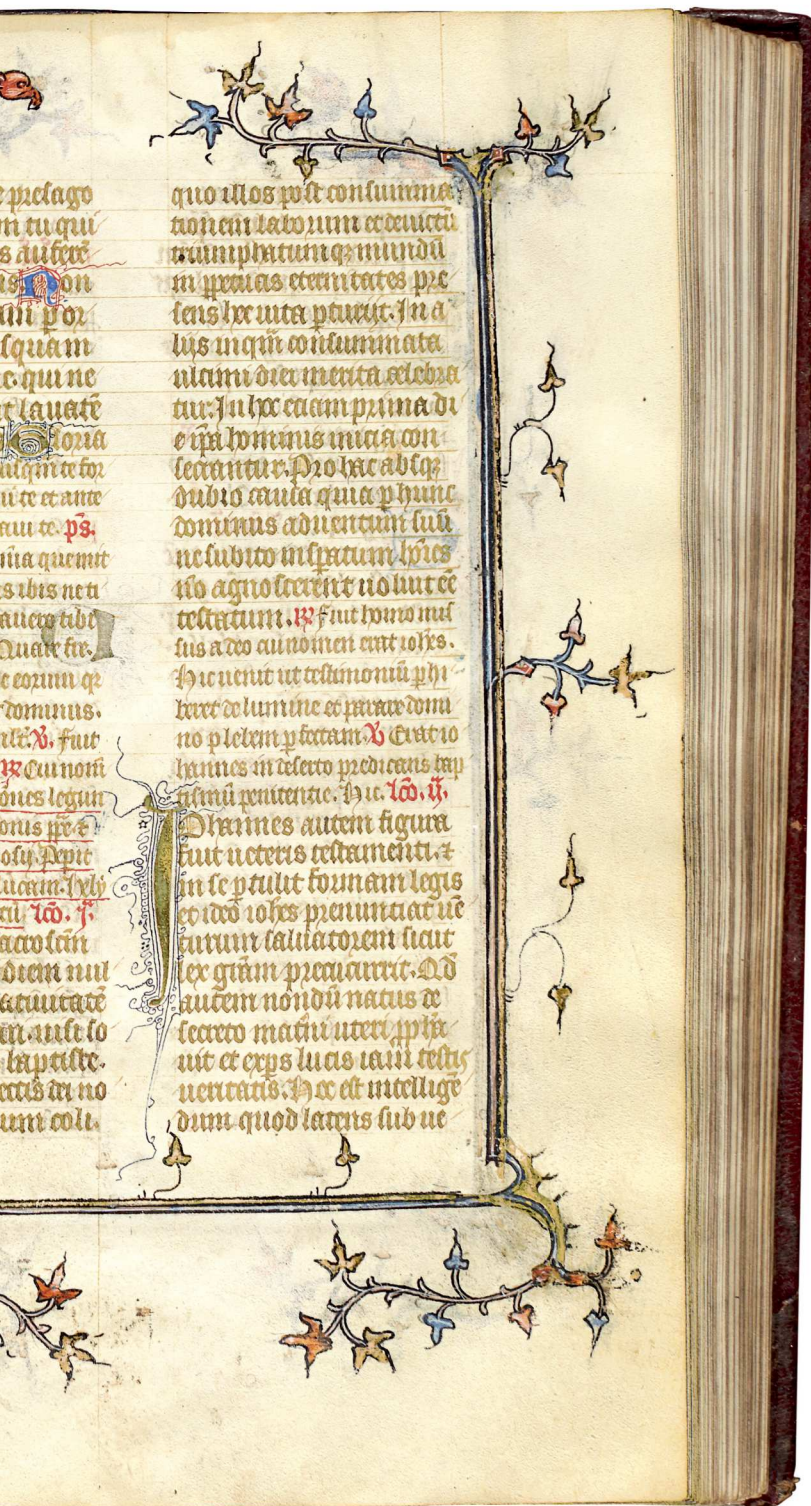 e presago
m tu qui
s aufere᷒
is. Non
am p̲ or
squam
e. qui ne
t lauatē
Gloria
usqm̄ te for
ui te et ante
aui te. p̄s.
quemit
s ibis ne ti
auero tibi
Quare fre.
e eorum qr̄
dominus.
℣. fuit
℟ Cui nom̄
ones legun
onis
osy. Pepit
lucam.
lc̄o. j.
acro
diem nul
atiuitatē
nisi so
baptiste.
ectis dei no
um coli.
quo illos post consumma
tionem laborum et deuictū
triumphatumqꝫ mundū
in perpetuas eternitates pre
sens hec uita p̲turiit. In a
lijs inqm̄ consummata
ultimi diei merita celebra
tur. In hoc etiam prima di
e ip̄a hominis inicia con
secrantur. Pro hac absqꝫ
dubio causa quia p̲ hunc
dominus aduentum suū
ne subito insperatum hoīes
nō agnoscerent uoluit eē
testatum. ℟ fuit homo mis
sus a deo cui nomen erat iohēs.
Hic uenit ut testimoniū p̲hi
beret de lumine et parare domi
no plebem p̲fectam. ℣ Erat io
hannes in deserto predicans bap
tismū penitentie. Hic. lc̄o. ij.
Iohannes autem figura
fuit ueteris testamenti. ⁊
in se p̲tulit formam legis
et ideo iohēs prenuntiat uē
turum saluatorem sicut
lex gr̄am precucurrit. Qd̄
autem nondū natus de
secreto mat̄ni uteri pp̄he
uit et exp̲s lucis iam testis
ueritatis. Hoc est intellige᷒
dum quod latens sub ue